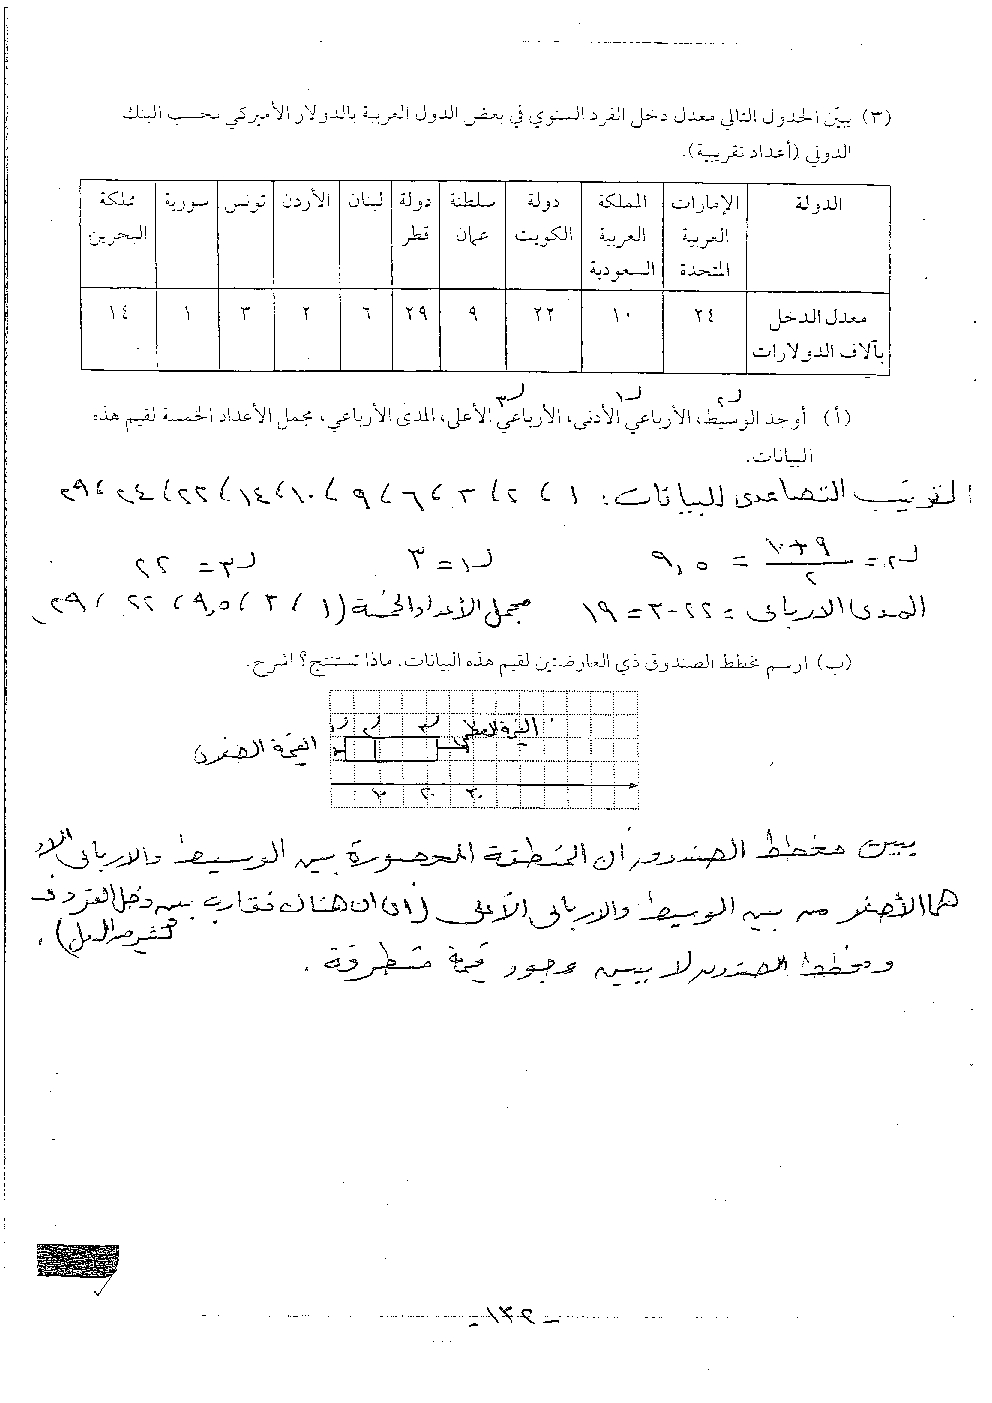 (٣) يبيّن الجدول التالي معدل دخل الفرد السنوي في بعض الدول العربية بالدولار الأميركي بحسب البنك
الدولي (أعداد تقريبية).
الدولة | الإمارات العربية المتحدة | المملكة العربية السعودية | دولة الكويت | سلطنة عمان | دولة قطر | لبنان | الأردن | تونس | سورية | مملكة البحرين
معدل الدخل بآلاف الدولارات | ٢٤ | ١٠ | ٢٢ | ٩ | ٢٩ | ٦ | ٢ | ٣ | ١ | ١٤
ر٢ ر١ ر٣
(أ) أوجد الوسيط، الأرباعي الأدنى، الأرباعي الأعلى، المدى الأرباعي، مجمل الأعداد الخمسة لقيم هذه
البيانات.
الترتيب التصاعدى للبيانات: ١ ، ٢ ، ٣ ، ٦ ، ٩ ، ١٠ ، ١٤ ، ٢٢ ، ٢٤ ، ٢٩
ر٢ = (٩ + ١٠) / ٢ = ٩,٥ ر١ = ٣ ر٣ = ٢٢
المدى الارباعى = ٢٢ - ٣ = ١٩ مجمل الأعداد الخمسة (١ ، ٣ ، ٩,٥ ، ٢٢ ، ٢٩)
(ب) ارسم مخطط الصندوق ذي العارضتين لقيم هذه البيانات. ماذا تستنتج؟ اشرح.
ر١ ر٢ ر٣ القيمة العظمى
القيمة الصغرى
٢٠ ٣٠
يبين مخطط الصندوق أن المنطقة المحصورة بين الوسيط والارباعى
هما الأصغر من بين الوسيط والارباعى الأعلى (اى ان هناك تقارب بين دخل الفرد فى
كثير من الدول).
ومخطط الصندوق لا يبين وجود قيمة متطرفة.
- ١٣٢ -